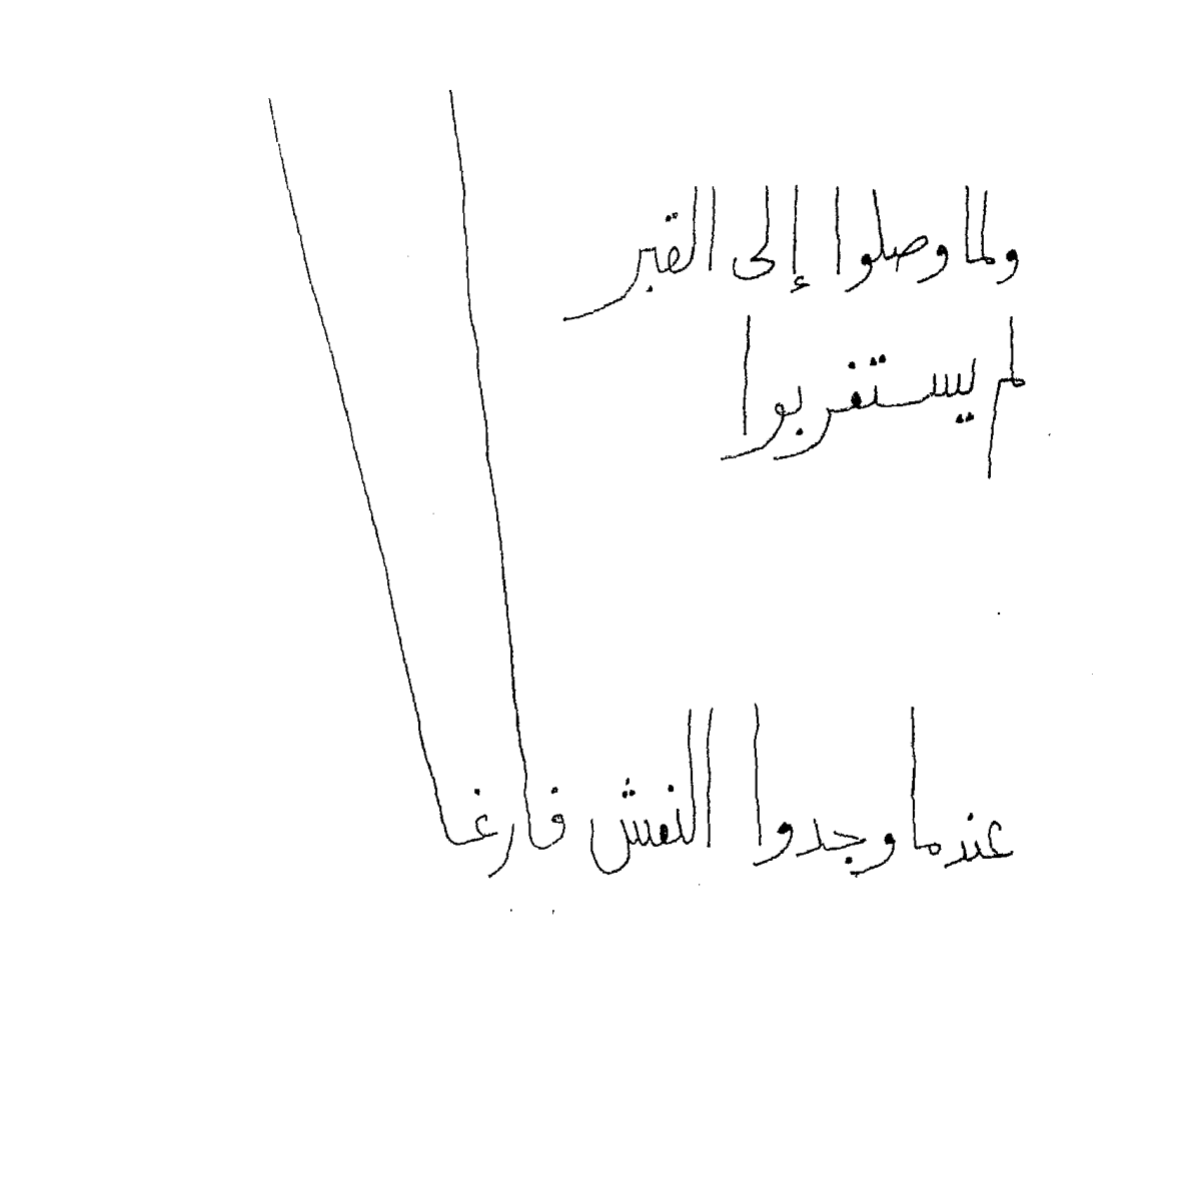 ولما وصلوا إلى القبر
لم يستغربوا
عندما وجدوا النعش فارغا